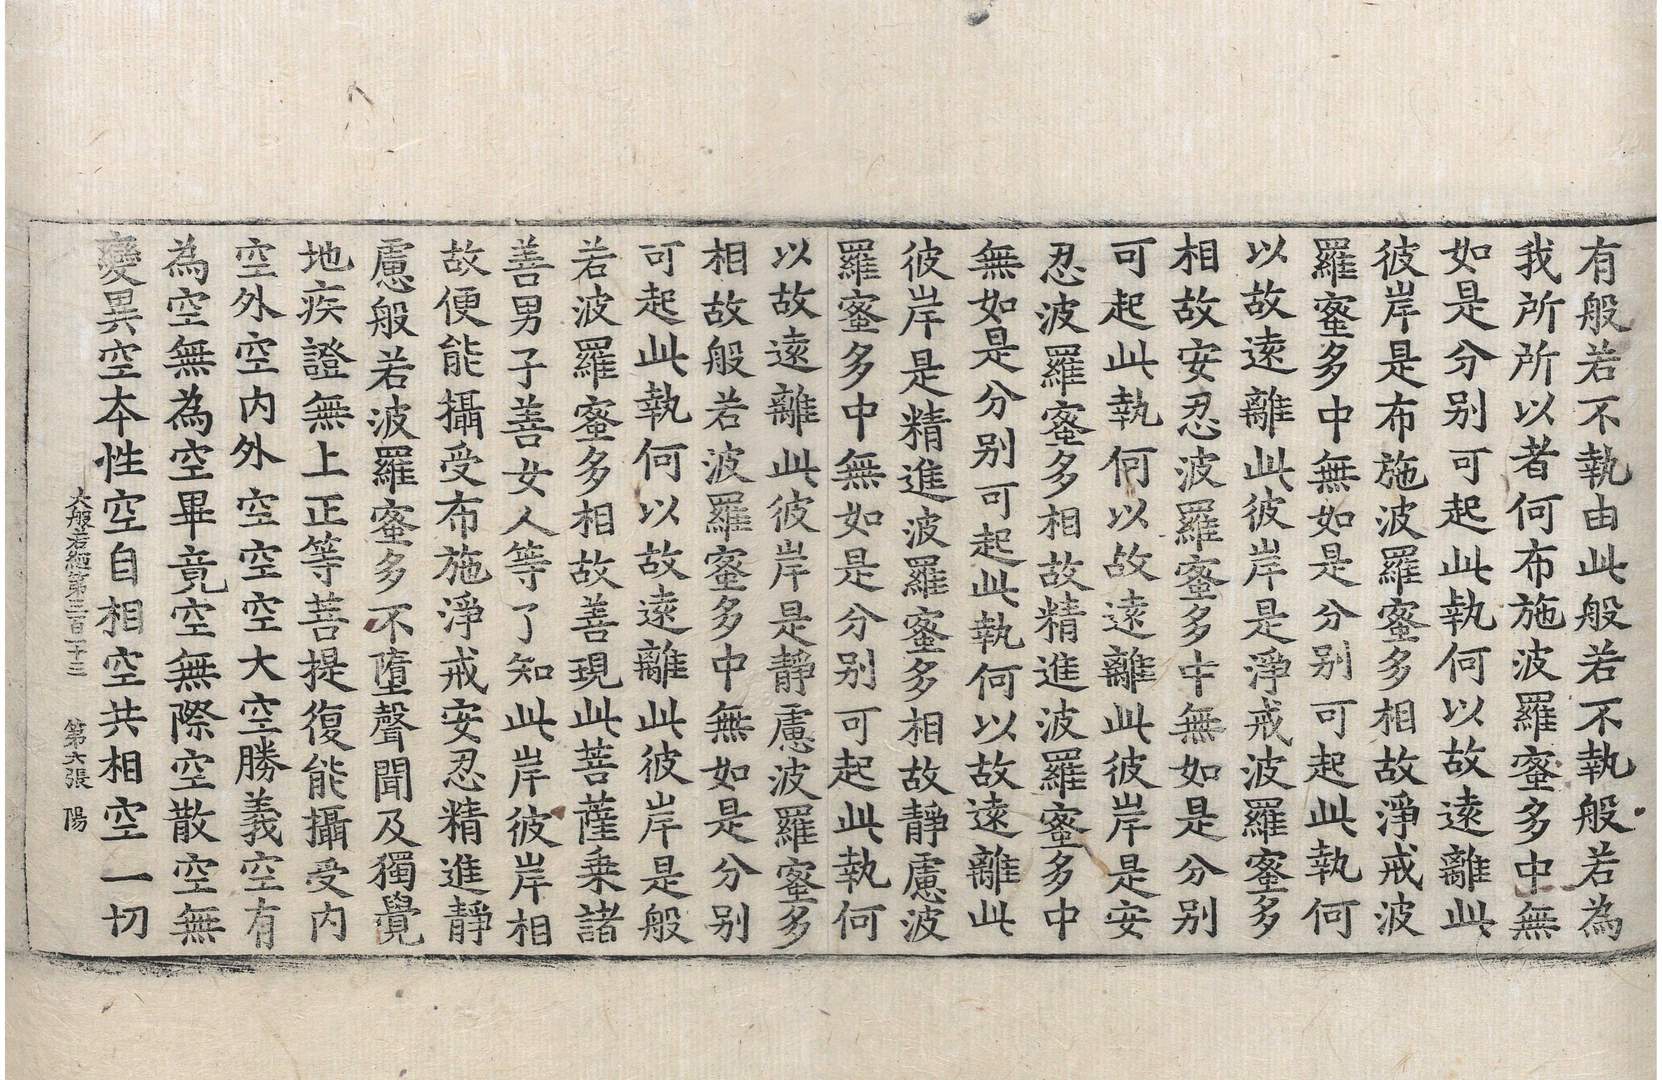 有般若不執由此般若不執般若為
我所所以者何布施波羅蜜多中無
如是分别可起此執何以故遠離此
彼岸是布施波羅蜜多相故淨戒波
羅蜜多中無如是分别可起此執何
以故遠離此彼岸是淨戒波羅蜜多
相故安忍波羅蜜多中無如是分别
可起此執何以故遠離此彼岸是安
忍波羅蜜多相故精進波羅蜜多中
無如是分别可起此執何以故遠離此
彼岸是精進波羅蜜多相故靜慮波
羅蜜多中無如是分别可起此執何
以故遠離此彼岸是靜慮波羅蜜多
相故般若波羅蜜多中無如是分别
可起此執何以故遠離此彼岸是般
若波羅蜜多相故善現此菩薩乗諸
善男子善女人等了知此岸彼岸相
故便能攝受布施淨戒安忍精進靜
慮般若波羅蜜多不墮聲聞及獨覺
地疾證無上正等菩提復能攝受内
空外空内外空空空大空勝義空有
為空無為空畢竟空無際空散空無
變異空本性空自相空共相空一切
大般若經第三百一十三 第六張 陽